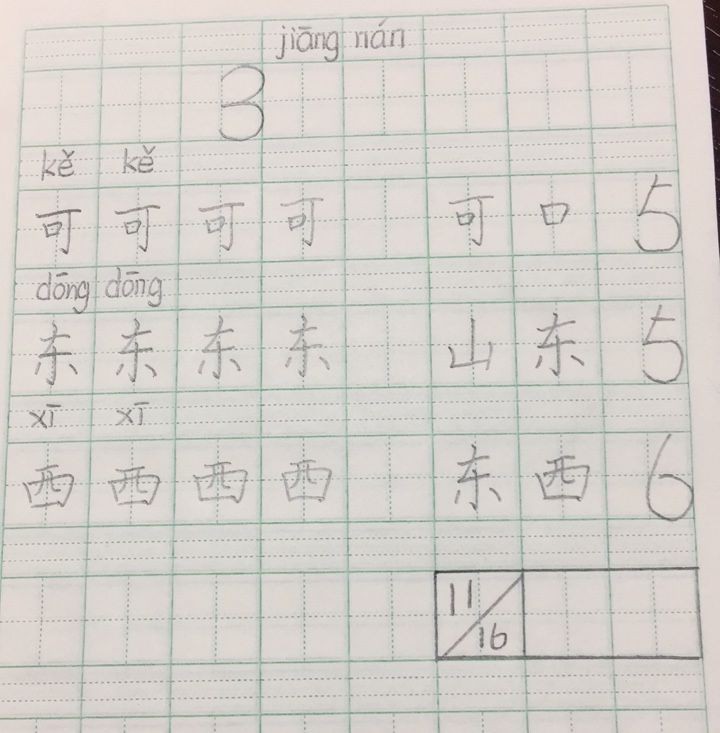 jiāng nán
3
kě kě
可 可 可 可 可 口 5
dōng dōng
东 东 东 东 山 东 5
xī xī
西 西 西 西 东 西 6
11/16